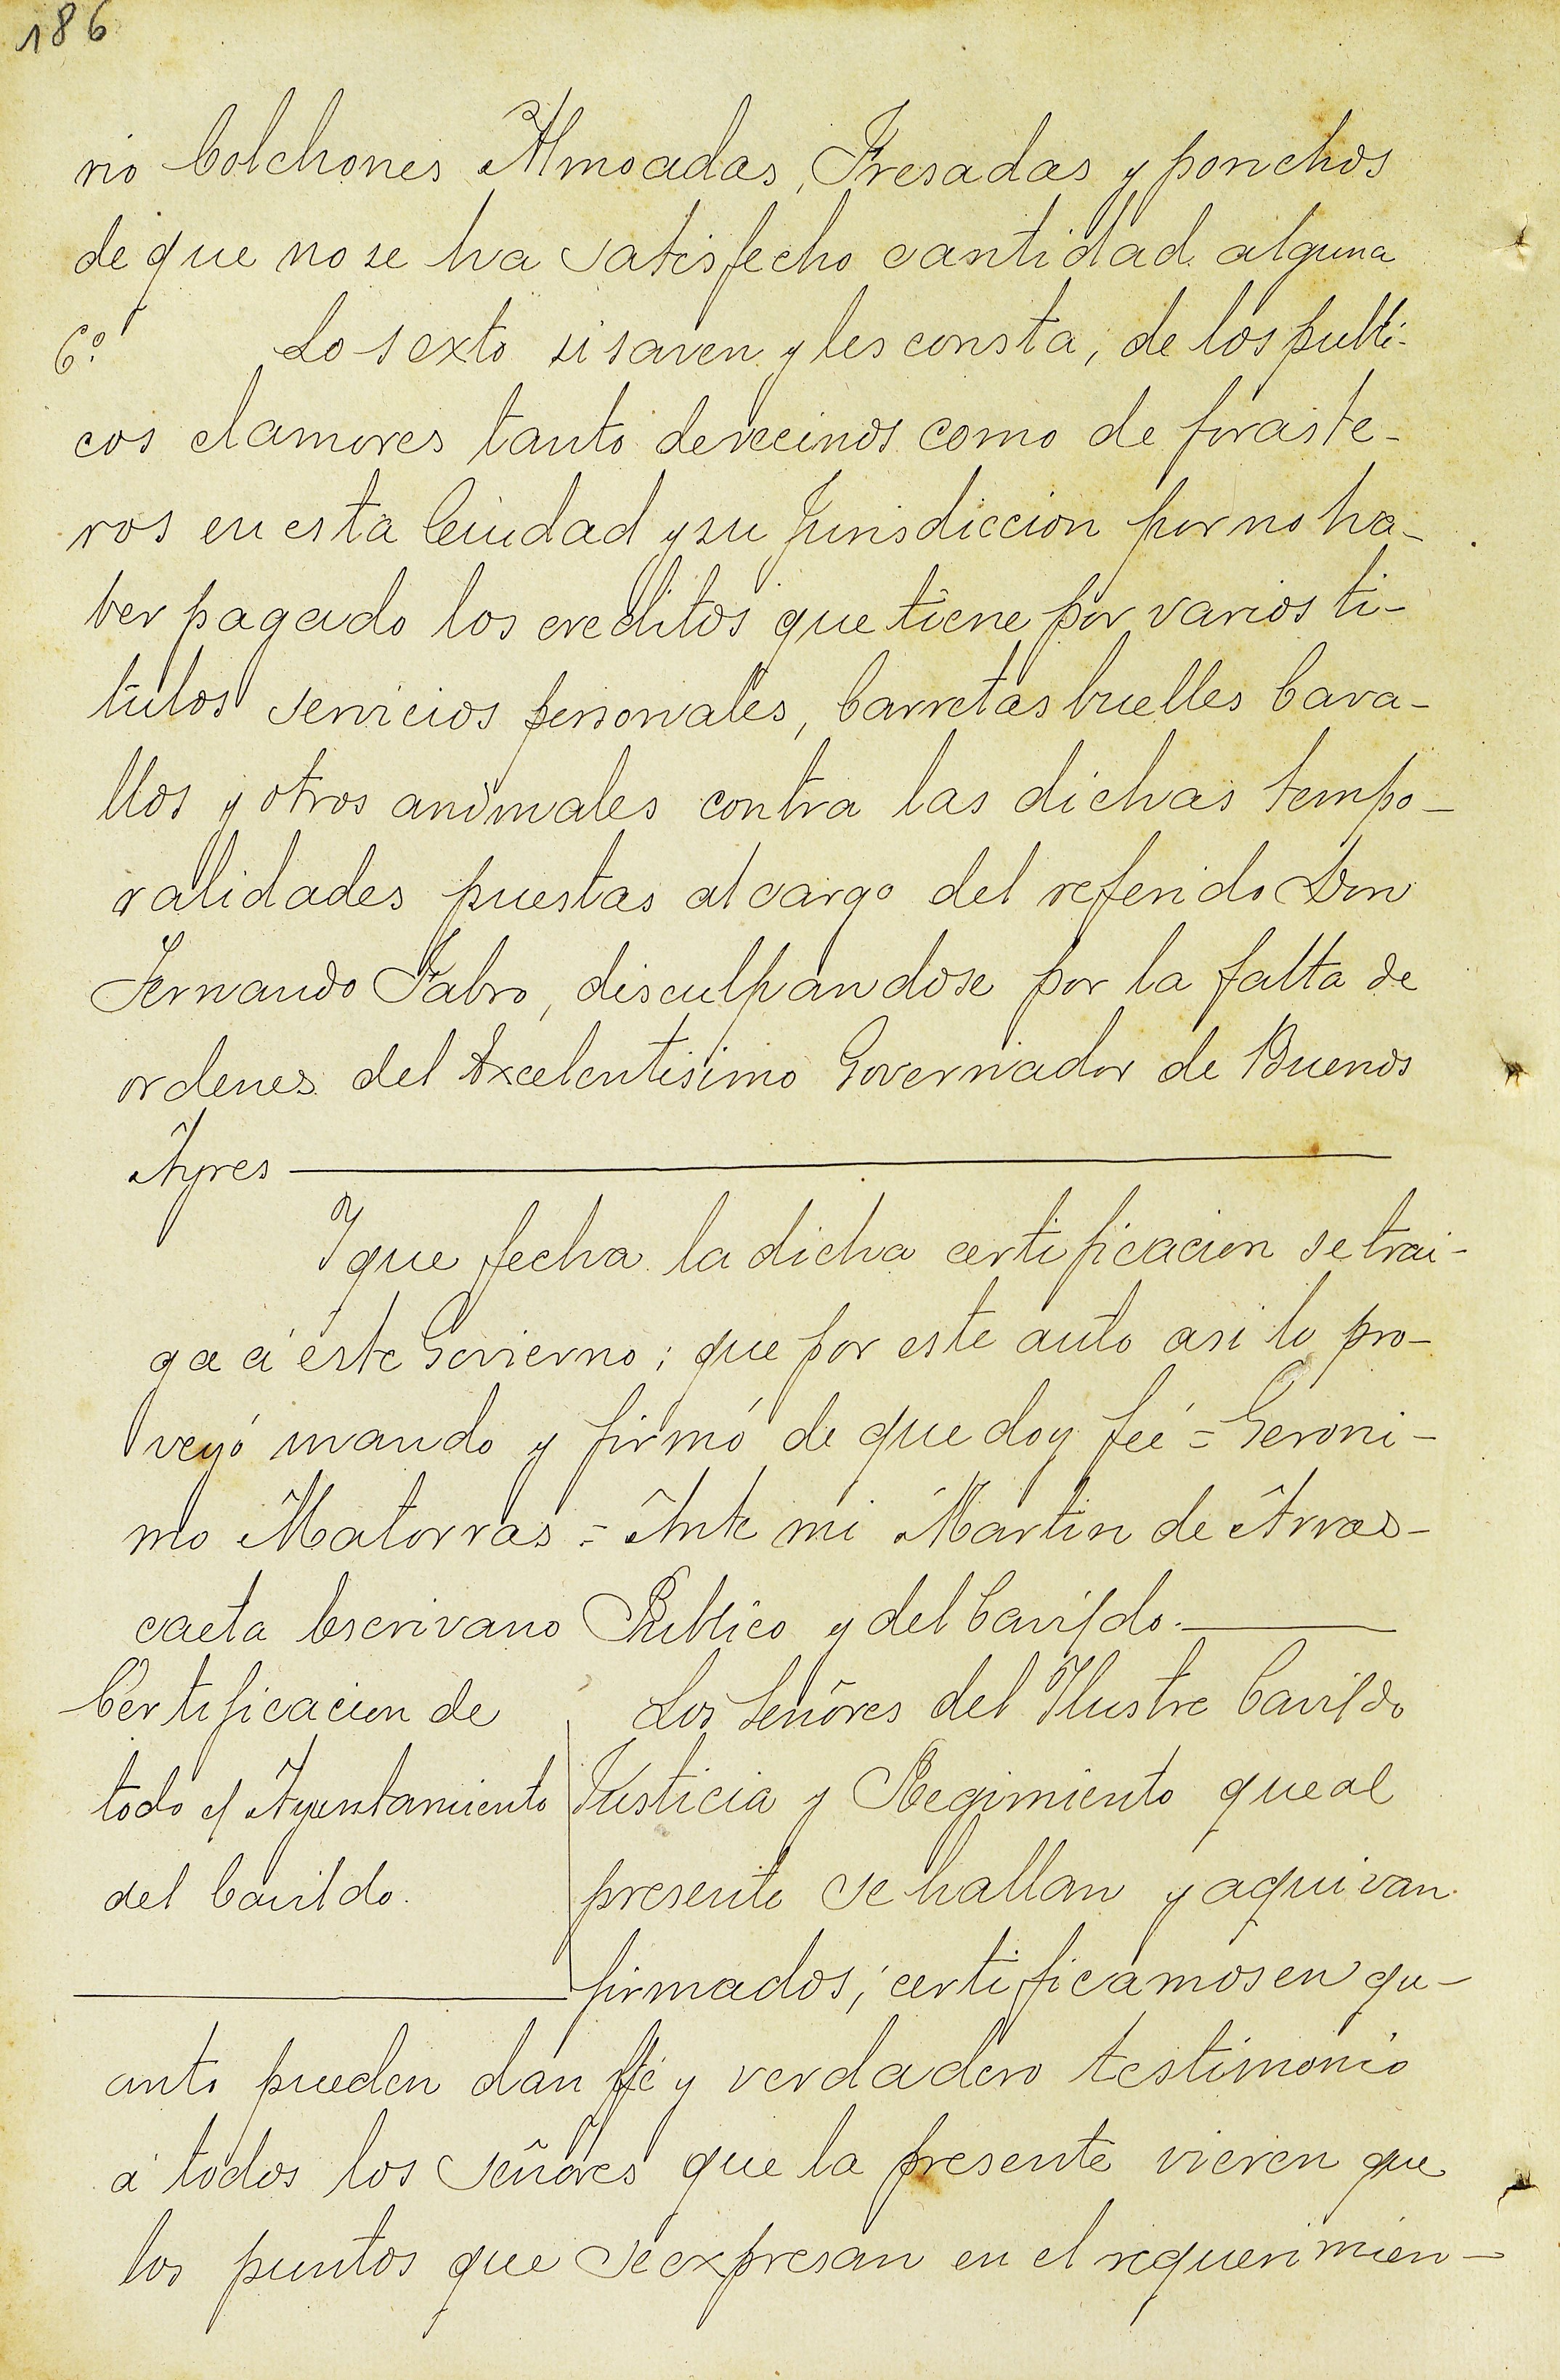 186
rio Colchones Almoadas, Fresadas y ponchos
de que no se ha satisfecho cantidad alguna
6.º Lo sexto si saven y les consta, de los publi-
cos clamores tanto de vecinos como de foraste-
ros en esta Ciudad y su Jurisdiccion por no ha-
ber pagado los creditos que tiene por varios ti-
tulos servicios personales, Carretas buelles Cava-
llos y otros animales contra las dichas tempo-
ralidades puestas al cargo del referido Don
Fernando Fabro, disculpandose por la falta de
ordenes del Excelentisimo Governador de Buenos
Ayres
Y que fecha la dicha certificacion se trai-
ga á éste Govierno; que por este auto asi lo pro-
veyó mando y firmó de que doy feé = Geroni-
mo Matorras = Ante mi Martin de Arras-
caeta Escrivano Publico y del Cavildo.
Certificacion de
todo el Ayuntamiento
del Cavildo.
Los Señores del Ilustre Cavildo
Justicia y Regimiento que al
presente se hallan y aqui van
firmados; certificamos en qu-
anto pueden dan fé y verdadero testimonio
á todos los señores que la presente vieren que
los puntos que se expresan en el requerimien-